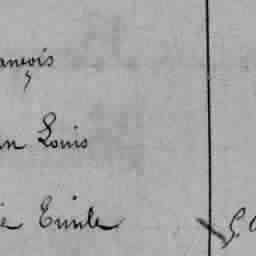 ançois
n Louis
ie Emile